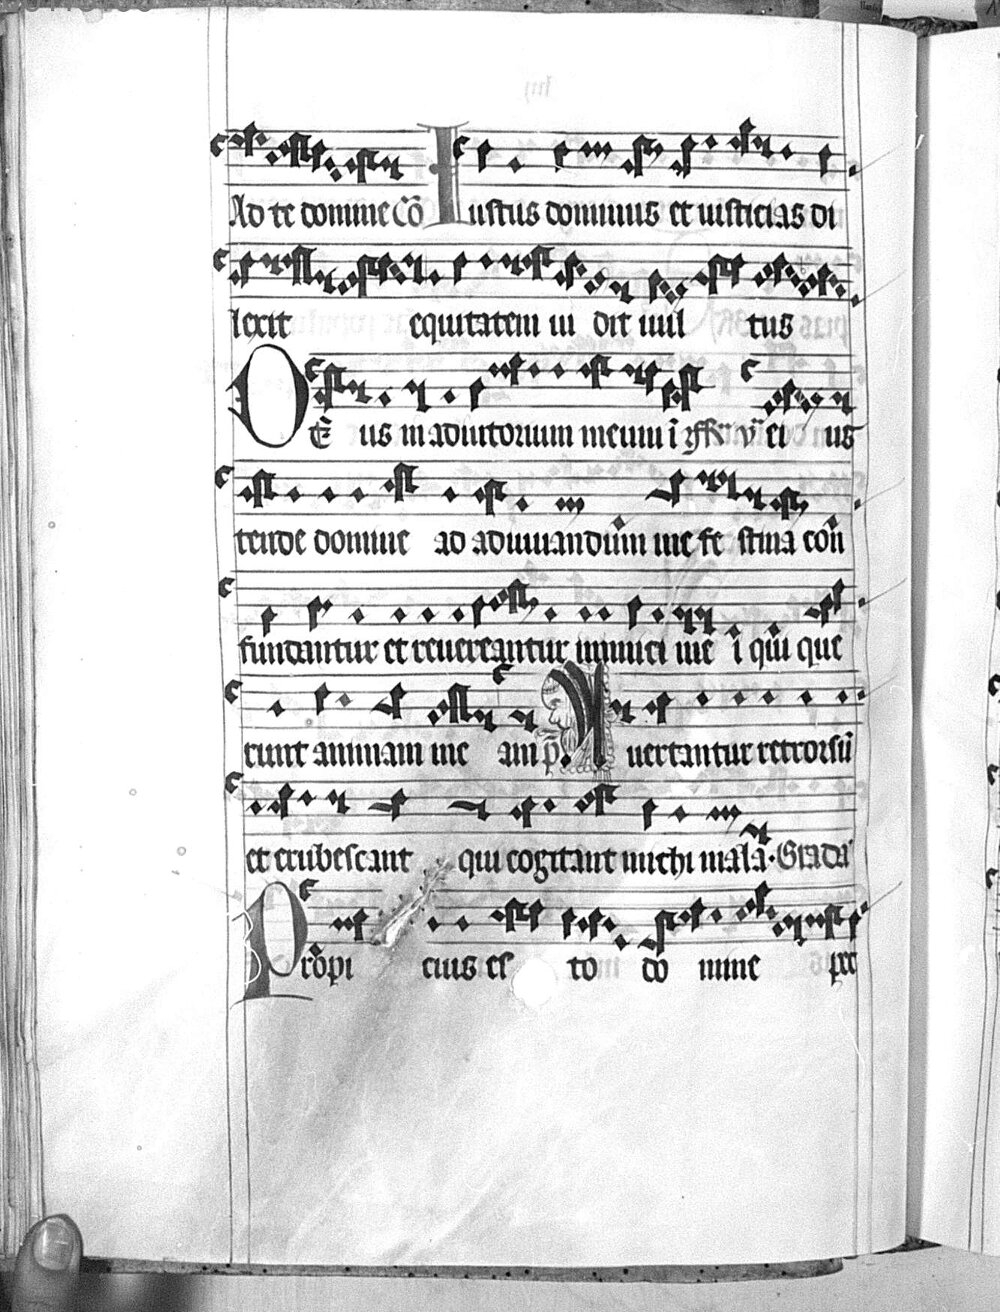 Ad te domine Cō Iustus dominus et iusticias di
lexit equitatem ui dit uul tus
De us in adiutorium meum ī ei us
tende domine ad adiuuandum me fe stina con
fundantur et reuereantur inimici me i qui que
runt animam me am p. A uertantur retrorsū
et erubescant qui cogitant michi mala. Grada
Propi cius es to do mine pec